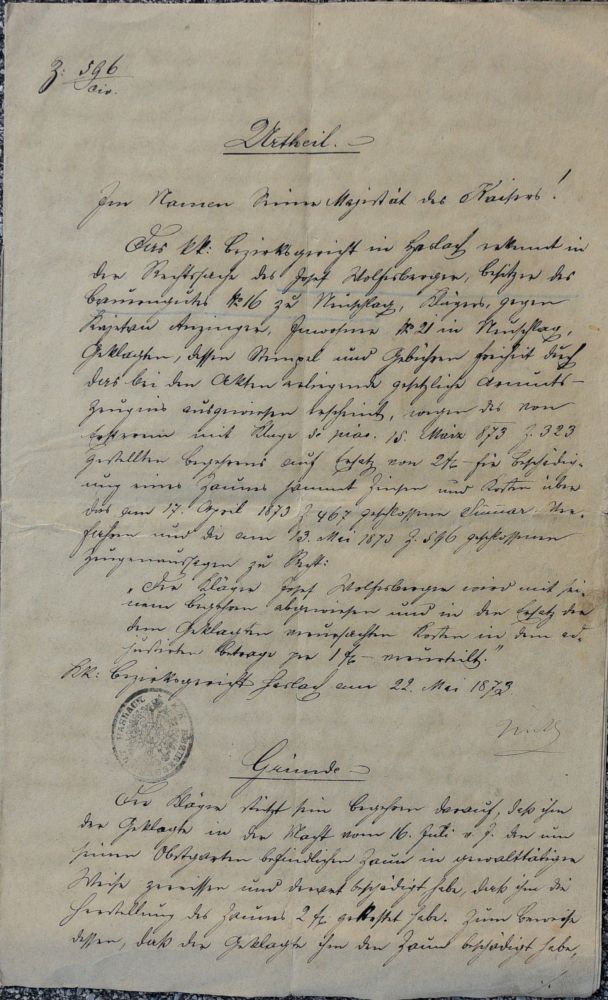 Z: 596
Civ.
Urtheil.
Im Namen Seiner Majestät des Kaisers!
Das kk: Bezirksgericht in Haslach erkennt in
der Rechtssache des Josef Wolfesberger, Besitzer des
Bauerngutes No 16 zu Neuschlag, Klägers, gegen
Kajetan Anzinger, Inwohner No 21 in Neuschlag,
Geklagten, dessen Stempel und Gebühren freiheit durch
das bei den Akten erliegende gesetzliche Armuts-
zeugnis ausgewiesen erscheint, wegen des von
Ersterem mit Klage de präs. 15. März 873 Z. 323
gestellten Begehrens auf Ersatz von 2 f – für Beschädig-
ung eines Zaunes sammt Zinsen und Kosten über
das am 17. April 1873 Z 467 geschlossene Summar. Ver-
fahren und die am 13. Mai 1873 Z. 596 geschlossenen
Zeugenaussagen zu Recht:
"Der Kläger Josef Wolfesberger wird mit sei-
nem Begehren abgewiesen und in den Ersatz der
dem Geklagten verursachten Kosten in dem ad-
justirten Betrage per 1 f – verurteilt."
kk: Bezirksgericht Haslach am 22. Mai 1873.
HASLACH
Gründe
Der Kläger stützt sein Begehren darauf, daß ihm
der Geklagte in der Nacht vom 16. Juli v. J. den um
seinen Obstgarten befindlichen Zaun in gewalttätiger
Weise zerrissen und derart beschädigt habe, daß ihm die
Herstellung des Zaunes 2 f gekostet habe. Zum Beweise
dessen, daß der Geklagte ihm den Zaun beschädigt habe,